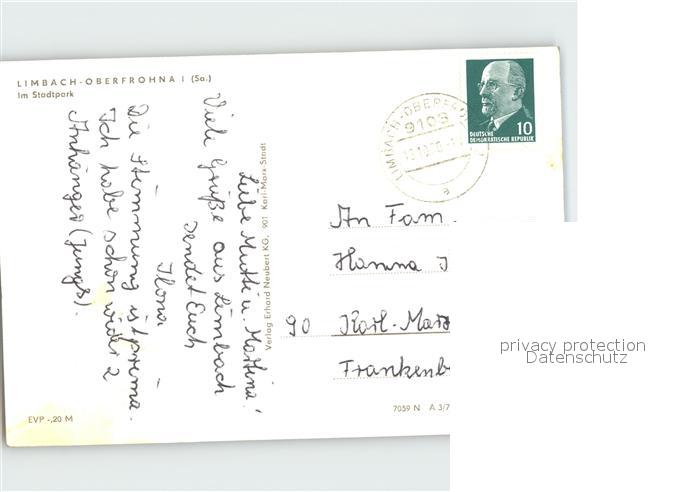 LIMBACH-OBERFROHNA I (Sa.)
Im Stadtpark
Liebe Mutti u. Martina!
Viele Grüße aus Limbach
sendet Euch
Ilona
Die Stimmung ist prima.
Ich habe schon wieder 2
Anhänger (Jungs).
Verlag Erhard Neubert KG, 901 Karl-Marx Stadt
LIMBACH-OBERF
9103
a
10
DEUTSCHE
DEMOKRATISCHE REPUBLIK
An Fam.
Hanna
90 Karl-Marx
Frankenb
EVP -,20 M
7059 N A 3/7
privacy protection
Datenschutz